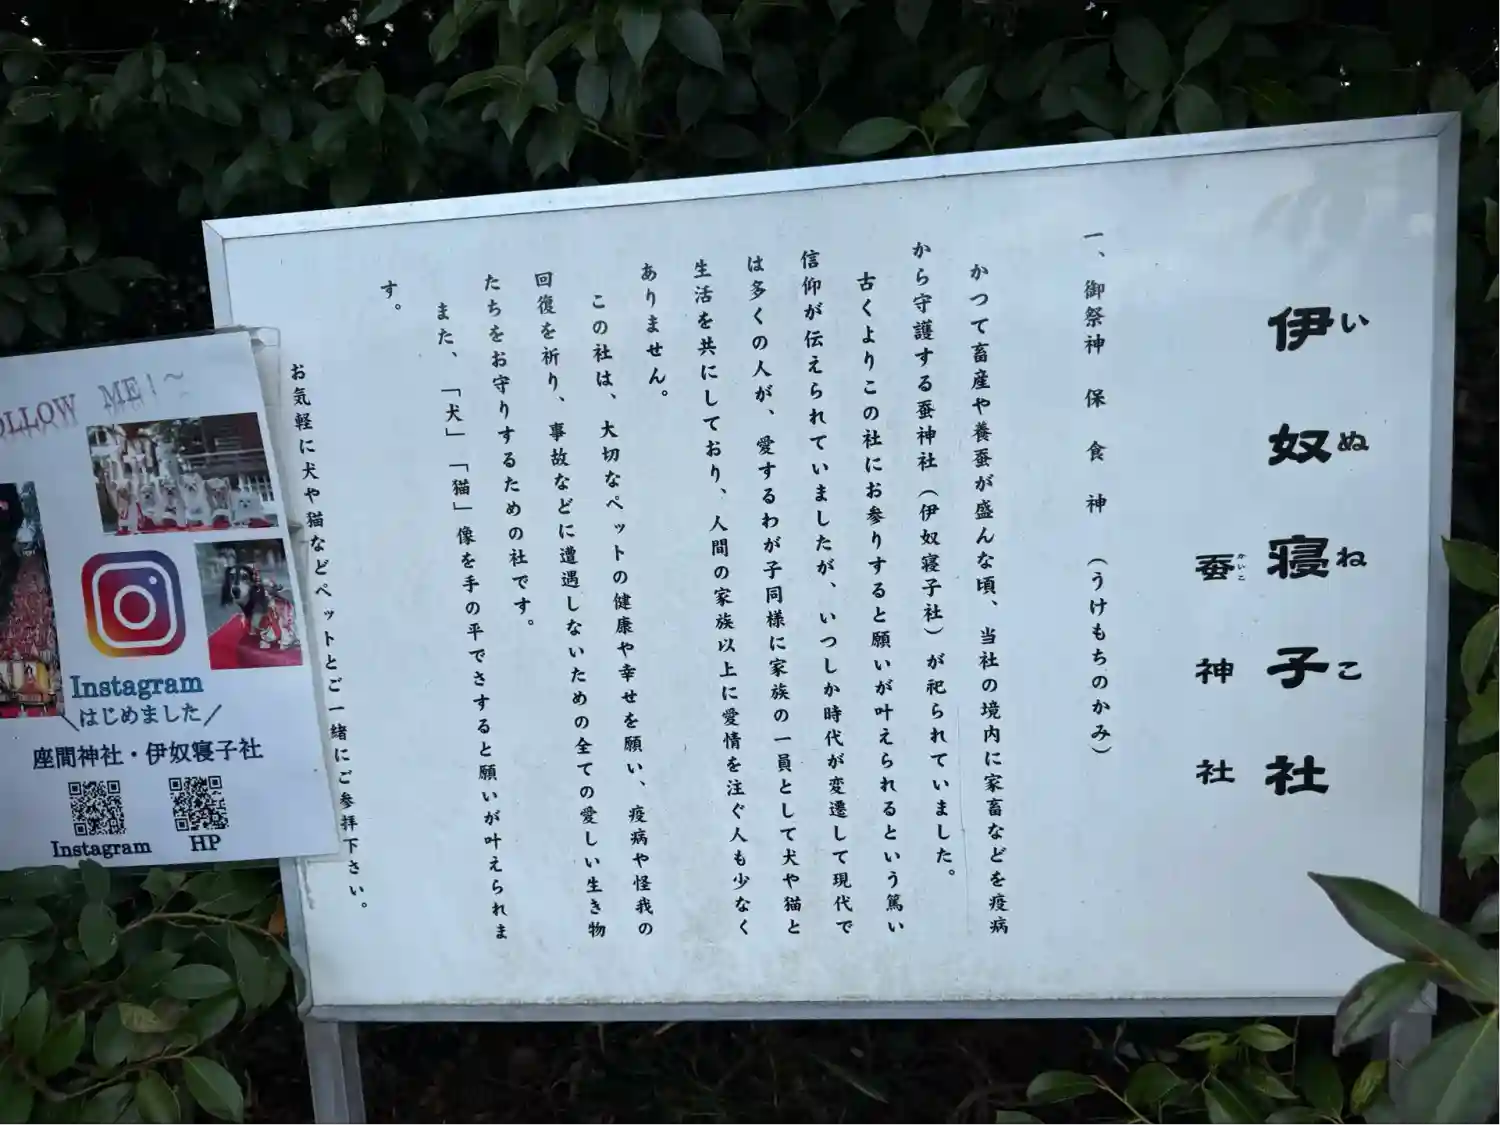 伊奴寝子社
いぬねこ
蚕神社
かいこ
一、御祭神 保食神 (うけもちのかみ)
かつて畜産や養蚕が盛んな頃、当社の境内に家畜などを疫病
から守護する蚕神社(伊奴寝子社)が祀られていました。
古くよりこの社にお参りすると願いが叶えられるという篤い
信仰が伝えられていましたが、いつしか時代が変遷して現代で
は多くの人が、愛するわが子同様に家族の一員として犬や猫と
生活を共にしており、人間の家族以上に愛情を注ぐ人も少なく
ありません。
この社は、大切なペットの健康や幸せを願い、疫病や怪我の
回復を祈り、事故などに遭遇しないための全ての愛しい生き物
たちをお守りするための社です。
また、「犬」「猫」像を手の平でさすると願いが叶えられま
す。
お気軽に犬や猫などペットとご一緒にご参拝下さい。
OLLOW ME!~
Instagram
\はじめました/
座間神社・伊奴寝子社
Instagram
HP